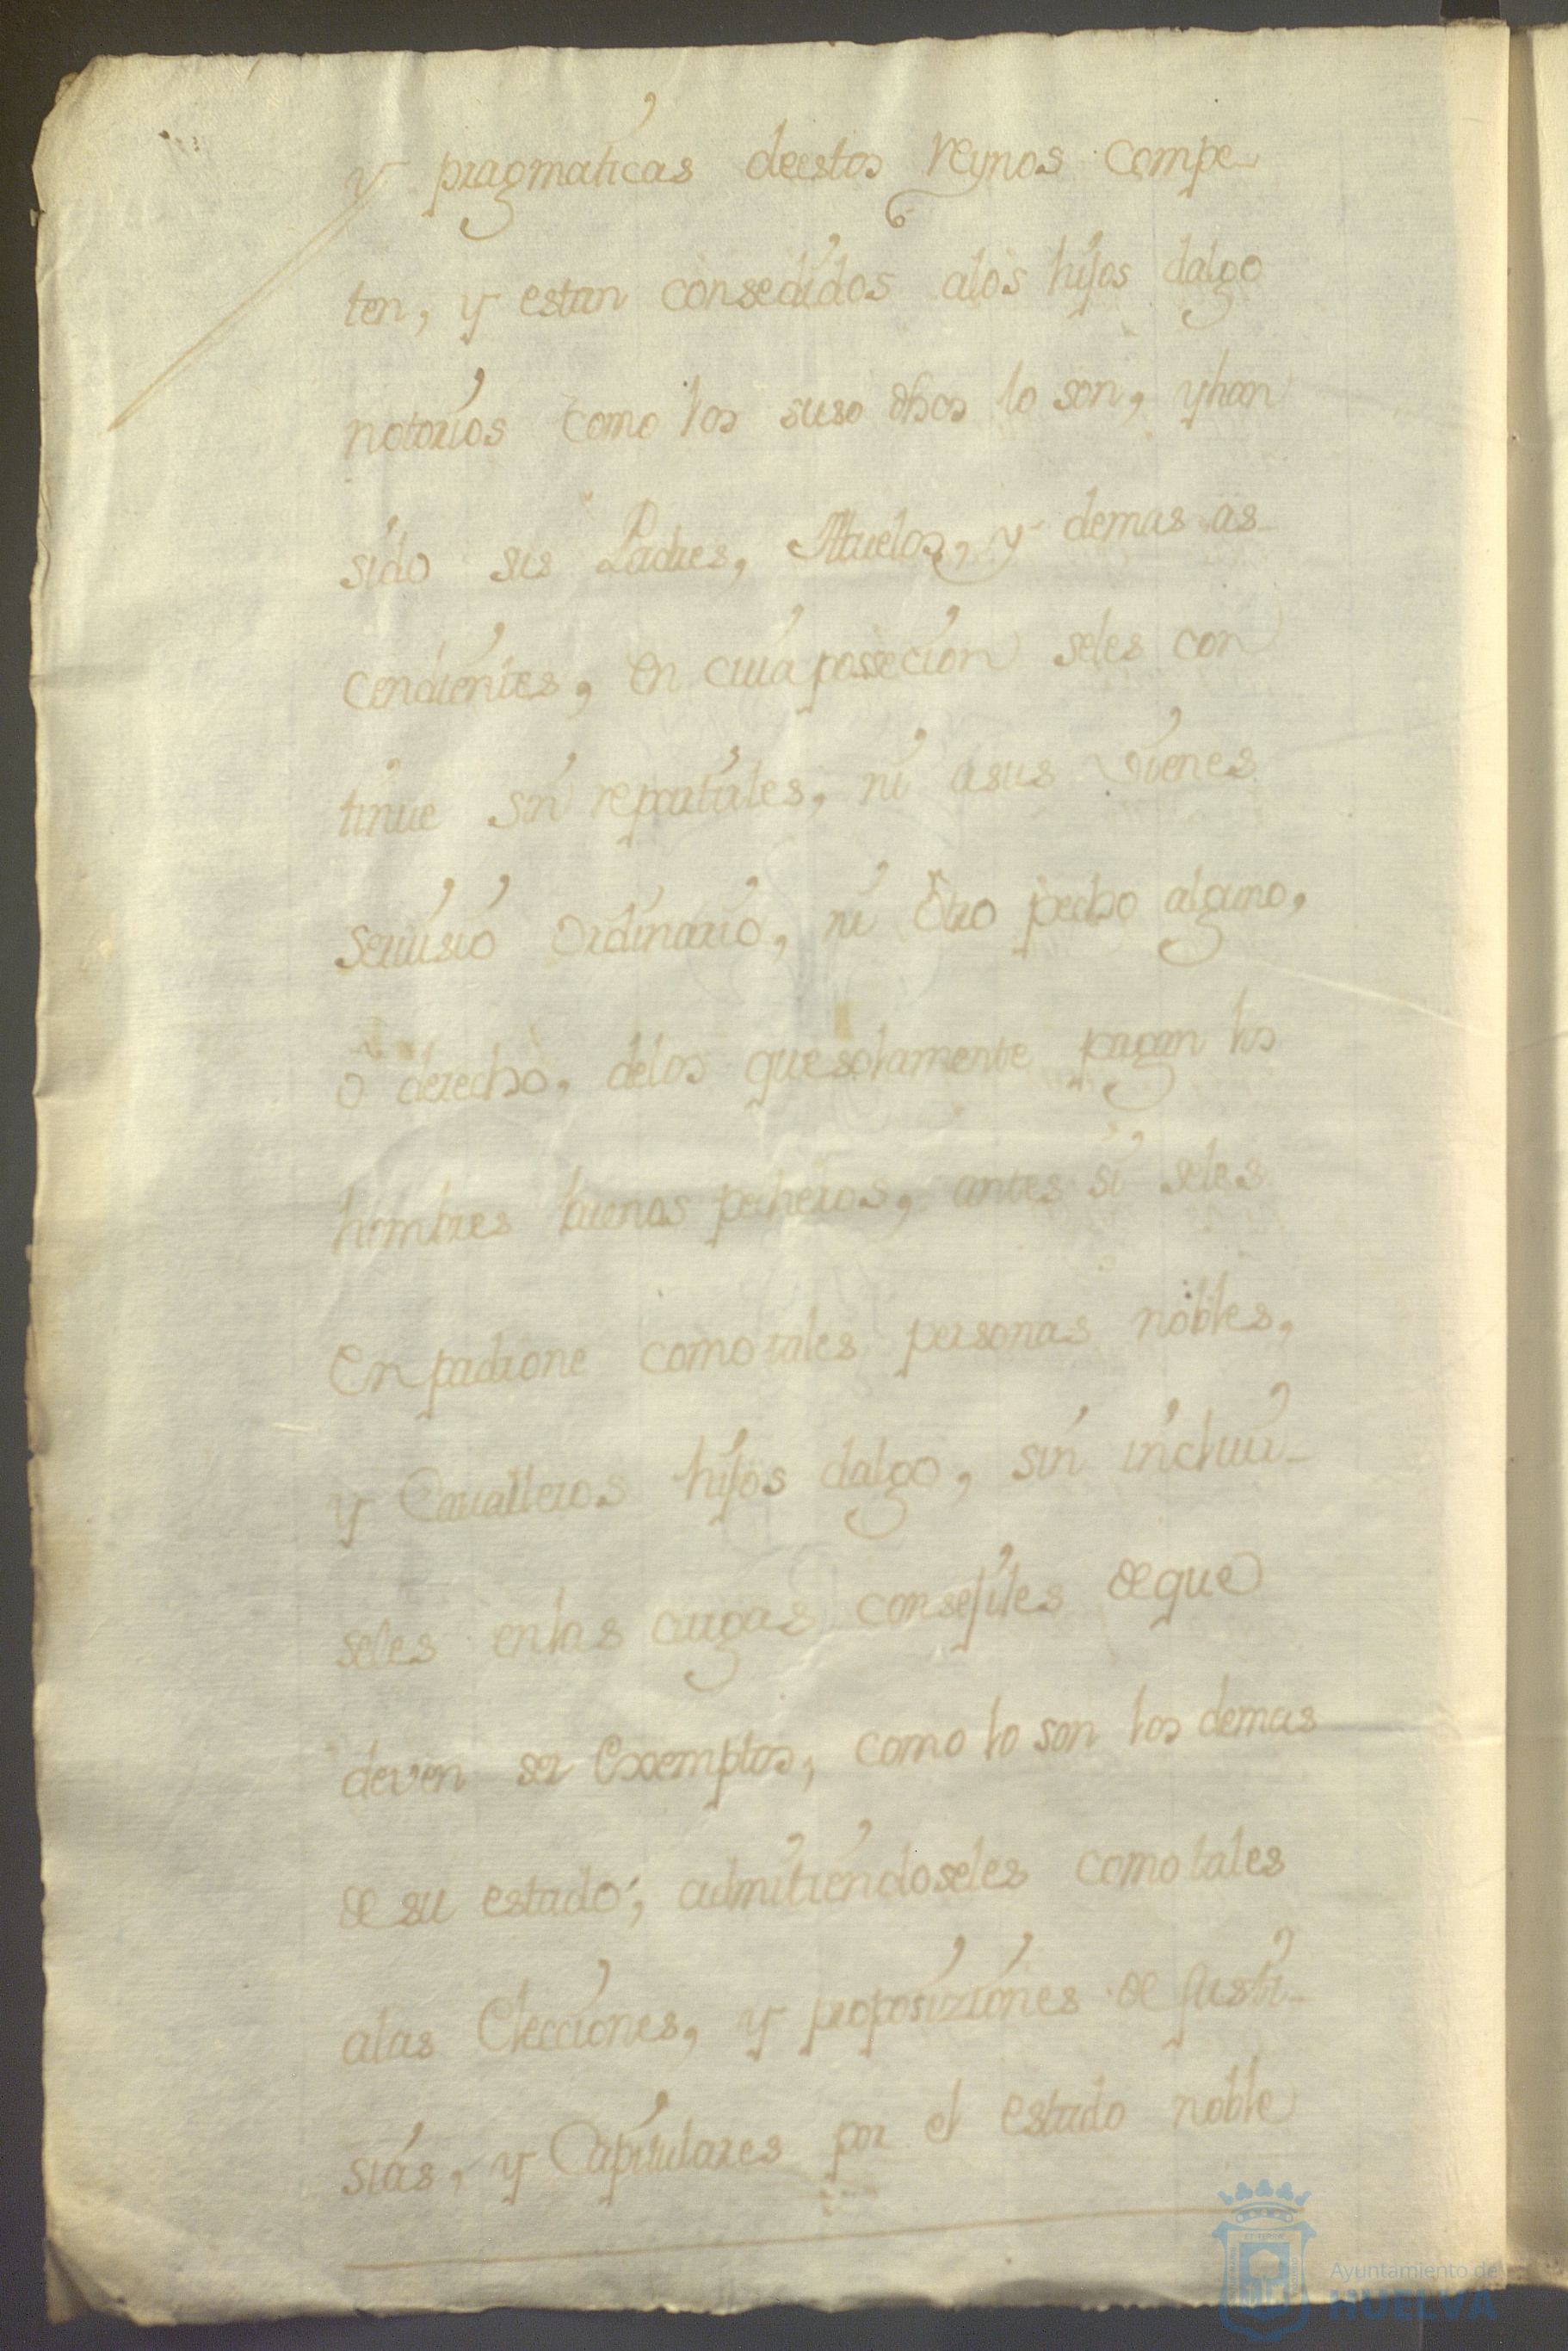 y pragmaticas deestos reynos compe-
ten, y estan consedidos alos hijos dalgo
notorios como los suso dhos lo son, yhan
sido sus Padres, Abuelos, y demas as-
cendientes, en cuia possecion seles con
tinue sin repartirles, ni asus vienes
seruisio ordinario, ni otro pecho alguno,
o derecho, delos quesolamente pagan los
hombres buenos pecheros, antes si seles
enpadrone comotales personas nobles,
y Caualleros hijos dalgo, sin incluir-
seles enlas cargas consejiles deque
deven ser Exsemptos, como lo son los demas
de su estado; admitiendoseles comotales
alas Elecciones, y proposiziones de Justi-
sias, y Capitulares por el estado noble
Ayuntamiento de
HUELVA